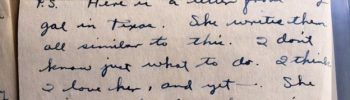 P.S. Here is a letter from
gal in Texas. She writes them
all similar to this. I don't
know just what to do. I think
I love her, and yet —. She